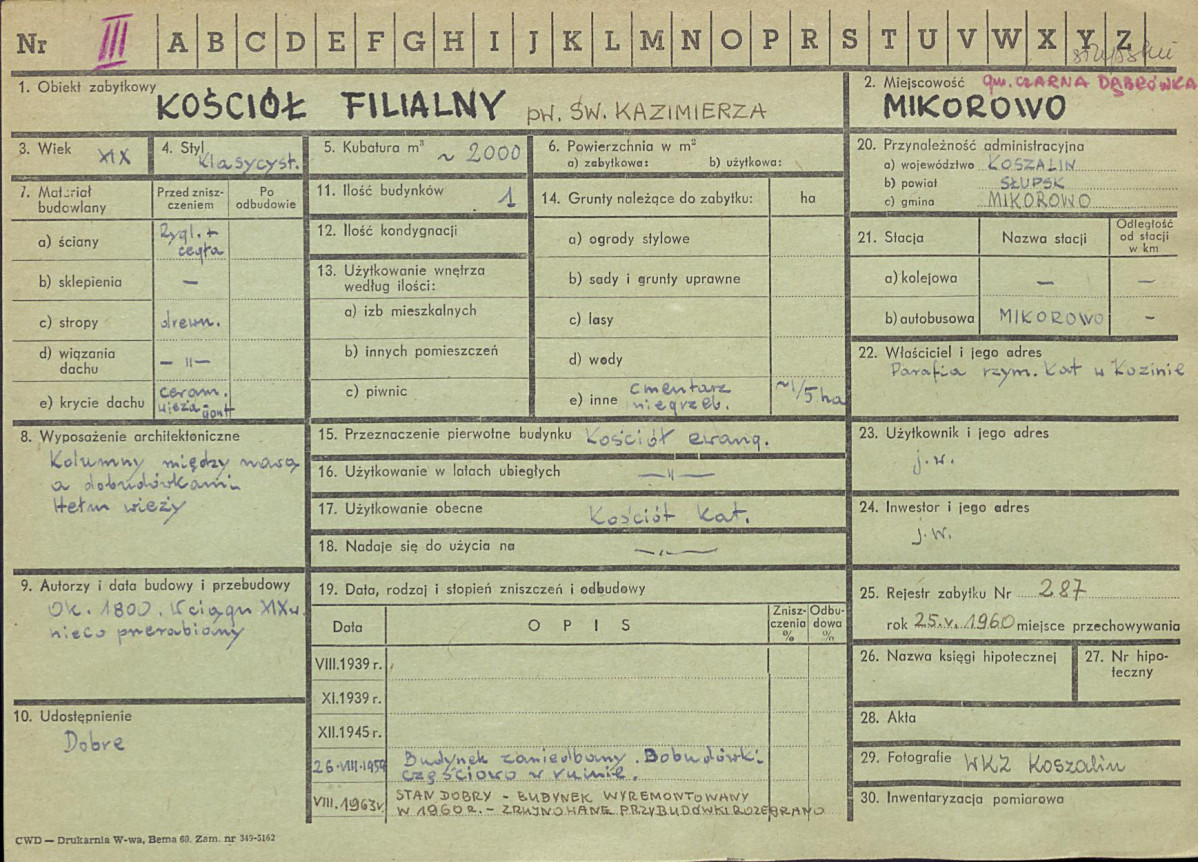 Nr III A B C D E F G H I J K L M N O P R S T U V W X Y Z
słupskie
1. Obiekt zabytkowy
KOŚCIÓŁ FILIALNY pw. ŚW. KAZIMIERZA
2. Miejscowość gm. CZARNA DĄBRÓWKA
MIKOROWO
3. Wiek XIX
4. Styl klasycyst.
5. Kubatura m³ ~ 2000
6. Powierzchnia w m²
a) zabytkowa: b) użytkowa:
7. Materiał budowlany
Przed zniszczeniem
Po odbudowie
a) ściany Rygl. + cegła
b) sklepienia —
c) stropy drewn.
d) wiązania dachu — 11 —
e) krycie dachu ceram. wieża - gont
8. Wyposażenie architektoniczne
Kolumny między nawą
a dobudówkami.
Hełm wieży
9. Autorzy i data budowy i przebudowy
Ok. 1800. W ciągu XIX w.
nieco przerabiany
10. Udostępnienie
Dobre
11. Ilość budynków 1
12. Ilość kondygnacji
13. Użytkowanie wnętrza
według ilości:
a) izb mieszkalnych
b) innych pomieszczeń
c) piwnic
14. Grunty należące do zabytku: ha
a) ogrody stylowe
b) sady i grunty uprawne
c) lasy
d) wody
e) inne cmentarz niegrzeb. ~1/5 ha
15. Przeznaczenie pierwotne budynku Kościół ewang.
16. Użytkowanie w latach ubiegłych — 11 —
17. Użytkowanie obecne Kościół kat.
18. Nadaje się do użycia na — 11 —
19. Data, rodzaj i stopień zniszczeń i odbudowy
Data OPIS Zniszczenia % Odbudowa %
VIII.1939 r.
XI.1939 r.
XII.1945 r.
26.VIII.1959 Budynek zaniedbany. Dobudówki
częściowo w ruinie.
VIII.1963r. STAN DOBRY - BUDYNEK WYREMONTOWANY
W 1960 R. - ZRUJNOWANE PRZYBUDÓWKI ROZEBRANO
20. Przynależność administracyjna
a) województwo KOSZALIN
b) powiat SŁUPSK
c) gmina MIKOROWO
21. Stacja Nazwa stacji Odległość od stacji w km
a) kolejowa — —
b) autobusowa MIKOROWO —
22. Właściciel i jego adres
Parafia rzym. kat w Rozinie
23. Użytkownik i jego adres
j.w.
24. Inwestor i jego adres
j.w.
25. Rejestr zabytku Nr 287
rok 25.V.1960 miejsce przechowywania
26. Nazwa księgi hipotecznej
27. Nr hipoteczny
28. Akta
29. Fotografie WKZ Koszalin
30. Inwentaryzacja pomiarowa
CWD — Drukarnia W-wa, Bema 60. Zam. nr 349-5162